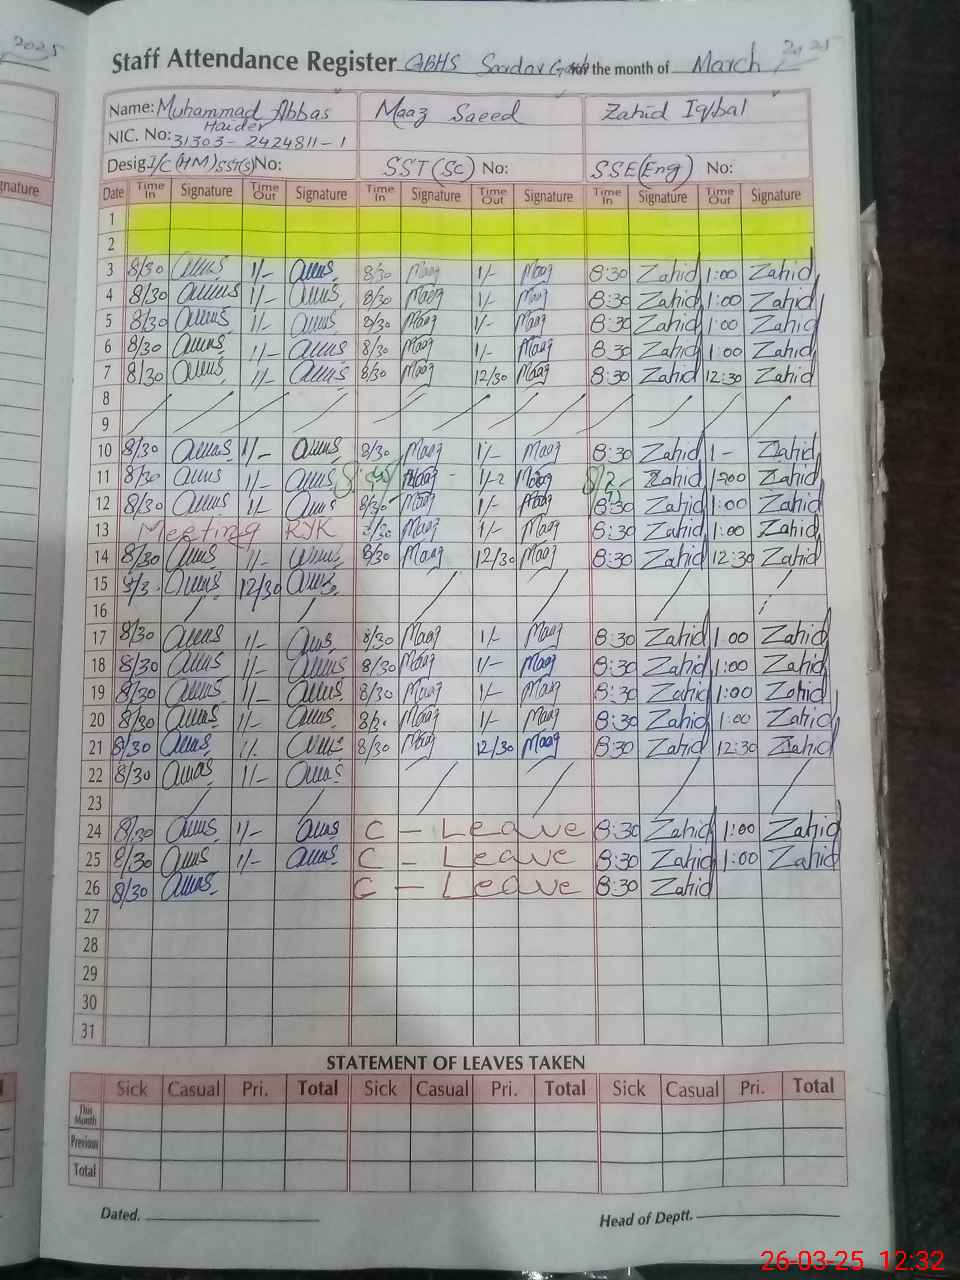 2025
Staff Attendance Register GBHS Sardar Garh for the month of March 2025
Name: Muhammad Abbas Haider Maaz Saeed Zahid Iqbal
NIC. No: 31303-2424811-1
Desig. I/C (HM) SST(S) No: SST(SC) No: SSE(Eng) No:
Date Time In Signature Time Out Signature Time In Signature Time Out Signature Time In Signature Time Out Signature
1
2
3 8/30 1/- 8/30 Maaz 1/- Maaz 8:30 Zahid 1:00 Zahid
4 8/30 1/- 8/30 Maaz 1/- Maaz 8:30 Zahid 1:00 Zahid
5 8/30 1/- 8/30 Maaz 1/- Maaz 8:30 Zahid 1:00 Zahid
6 8/30 1/- 8/30 Maaz 1/- Maaz 8:30 Zahid 1:00 Zahid
7 8/30 1/- 8/30 Maaz 12/30 Maaz 8:30 Zahid 12:30 Zahid
8
9
10 8/30 1/- 8/30 Maaz 1/- Maaz 8:30 Zahid 1- Zahid
11 8/30 1/- Maaz Maaz Zahid 1:00 Zahid
12 8/30 1/- 8/30 Maaz 1/- Maaz 8:30 Zahid 1:00 Zahid
13 Meeting RYK Maaz 1/- Maaz 8:30 Zahid 1:00 Zahid
14 8/30 1/- 8/30 Maaz 12/30 Maaz 8:30 Zahid 12:30 Zahid
15 12/30
16
17 8/30 1/- 8/30 Maaz 1/- Maaz 8:30 Zahid 1:00 Zahid
18 8/30 1/- 8/30 Maaz 1/- Maaz 8:30 Zahid 1:00 Zahid
19 8/30 1/- 8/30 Maaz 1/- Maaz 8:30 Zahid 1:00 Zahid
20 8/30 1/- Maaz 1/- Maaz 8:30 Zahid 1:00 Zahid
21 8/30 1/- 8/30 Maaz 12/30 Maaz 8:30 Zahid 12:30 Zahid
22 8/30 1/-
23
24 8/30 1/- C - Leave 8:30 Zahid 1:00 Zahid
25 8/30 1/- C - Leave 8:30 Zahid 1:00 Zahid
26 8/30 C - Leave 8:30 Zahid
27
28
29
30
31
STATEMENT OF LEAVES TAKEN
Sick Casual Pri. Total Sick Casual Pri. Total Sick Casual Pri. Total
This Month
Previous
Total
Dated. Head of Deptt.
26-03-25 12:32